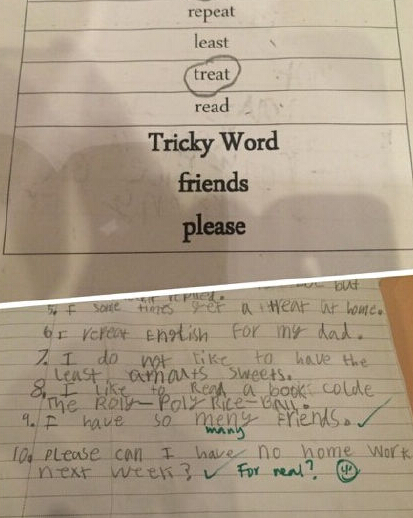 repeat
least
treat
read
Tricky Word
friends
please
but
replied.
5. I some times get a treat at home.
6. I repeat English for my dad.
7. I do not like to have the
least amouts sweets.
8. I Like to Read a book colde
The Roly-Poly Rice-Ball.
9. I have so meny friends.
many
10. Please can I have no home work
next week? For real?